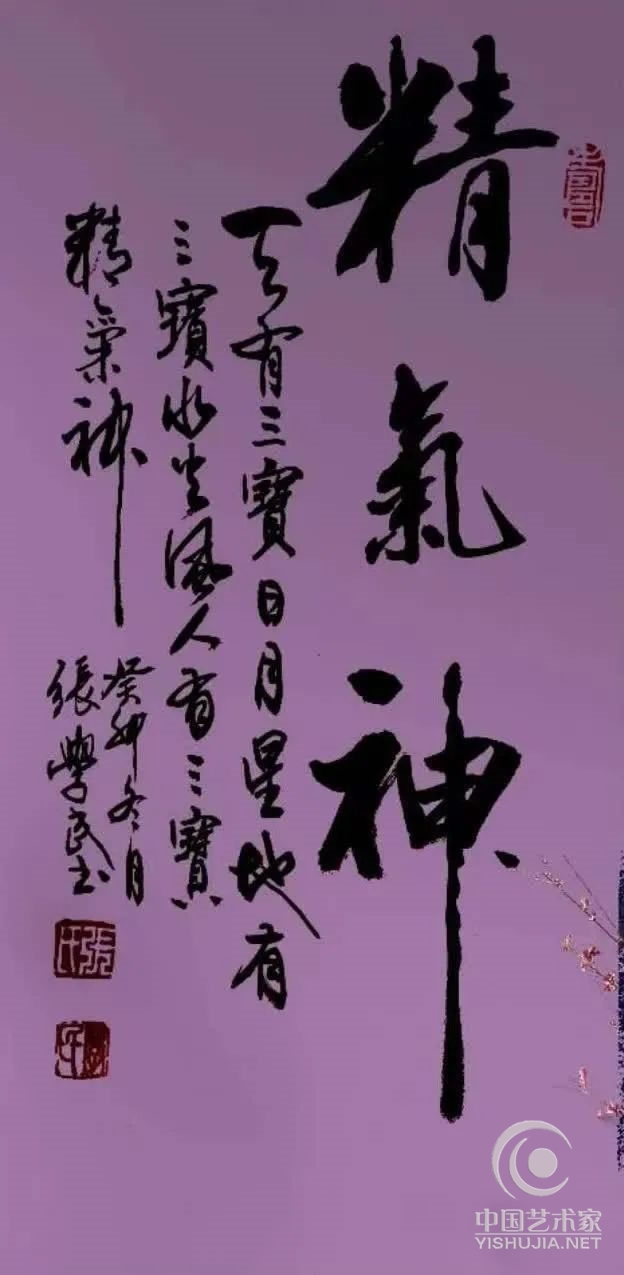 精氣神
天有三寶日月星地有
三寳水火風人有三寶
精氣神
癸卯冬月
張學民书
中国艺术家
YISHUJIA.NET